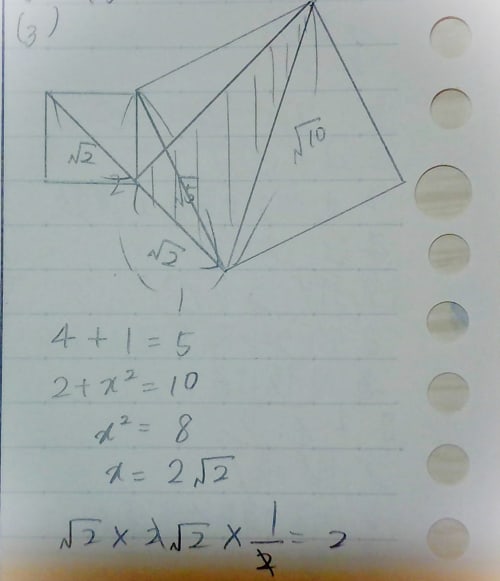 (3)
√10
√2
2
√5
√2
1
4 + 1 = 5
2 + x² = 10
x² = 8
x = 2√2
√2 × 2√2 × 1/2 = 2